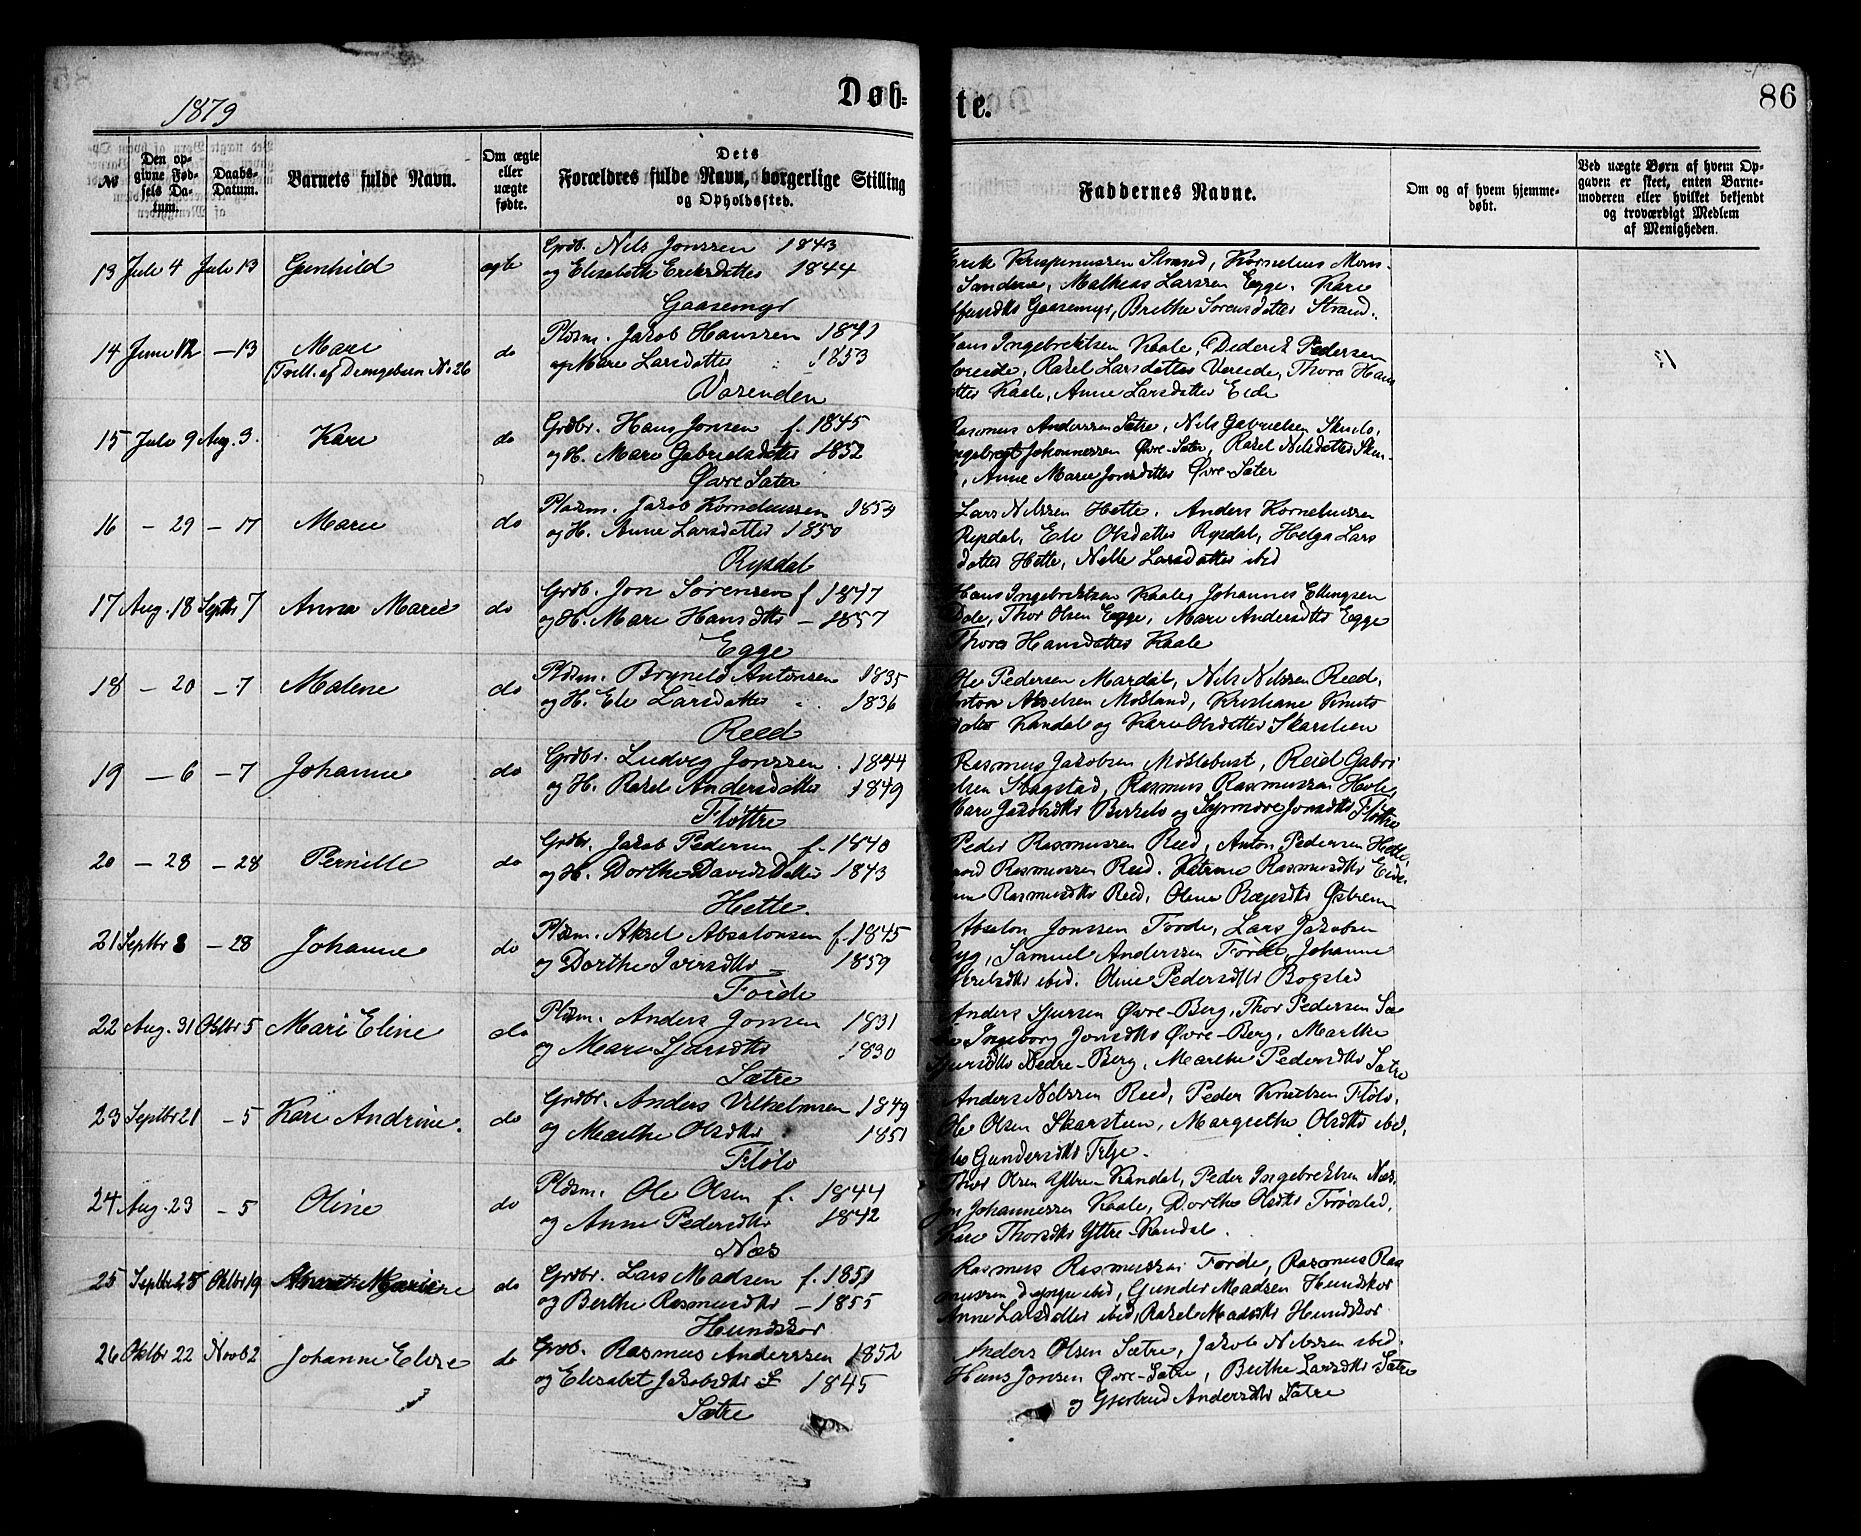 1879
Døb-
te.
86
№
Den op-
givne Fød-
sels Da-
tum.
Daabs-
Datum.
Barnets fulde Navn.
Om ægte
eller
uægte
fødte.
Dets
Forældres fulde Navn, borgerlige Stilling
og Opholdssted.
Faddernes Navne.
Om og af hvem hjemme-
døbt.
Ved uægte Børn af hvem Op-
gaven er skeet, enten Barne-
moderen eller hvilket bekjendt
og troværdigt Medlem
af Menigheden.
13 Juli 4 Juli 13 Gunhild ægte
Grdb. Nils Jonssen 1843
og Elisabeth Eriksdatter 1844
Gaasemyr
Krispinussen Strand, Kornelius Mons-
Sandene, Mathias Larssen Egge, Kari
Gaasemyr, Brethe Sorensdatter Strand.
14 Juni 12 – 13 Mari
(Tvill. af Drengebarn No 26
do
Pldsm. Jakob Hanssen 1841
og Mari Larsdatter 1853
Varenden
Hans Ingebrektsen Kaale, Dederik Pedersen
Vereide, Rakel Larsdatter Vereide, Thora Hans
datter Kaale, Anne Larsdatter Eide
15 Juli 9 Aug. 3. Kari do
Grdbr. Hans Jonsen f. 1845
og H. Mari Gabrielsdatter 1852
Øvre Sæter
Rasmus Anderssen Sætre, Nils Gabrielsen
Ingebregt Johannessen Øvre-Sæter, Rakel Nilsdatter
, Anne Marie Jonsdatter Øvre-Sæter
16 – 29 – 17 Marie do
Pladsm. Jakob Korneliussen 1854
og H. Anne Larsdatter 1850
Rypdal
Lars Nilssen Hette, Anders Korneliussen
Rypdal, Eli Olsdatter Rypdal, Helga Lars
datter Hette, Nille Larsdatter ibid
17 Aug. 18 Septbr 7 Anna Marie do
Grdb. Jon Sørensen f 1847
og H. Mari Hansdtr – 1857
Egge
Hans Ingebrektsen Kaale, Johannes Ellingsen
Dale, Thor Olsen Egge, Mari Andersdtr Egge
Thora Hansdatter Kaale
18 – 20 – 7 Malene do
Pldsm. Brynild Antonsen 1835
og H. Eli Larsdatter 1836
Reed
Ole Pedersen Mardal, Nils Nilssen Reed,
Anton Akselsen Mokland, Kristiane Knuts
datter Kandal og Kari Olsdatter Skarsteen
19 – 6 – 7 Johanne do
Grdbr. Ludvig Jonssen 1844
og H. Rakel Andersdatter 1849
Fløttre
Rasmus Jakobsen Myklebust, Reid Gabri
elsen Stagstad, Rasmus Rasmussen Hole,
Mari Jakobsdtr Birkelo og Synnøve Jonsdtr Fløttre
20 – 28 – 28 Pernille do
Grdbr. Jakob Pedersen f. 1840
og H. Dorthe Davidsdatter 1843
Hette.
Peder Rasmussen Reed, Anton Pedersen Hette,
Rasmussen Reed. Katrine Rasmusdtr Eide,
Rasmusdtr Reed, Oline
21 Septbr 8 – 28 Johanne do
Pldsm. Aksel Absalonsen f. 1845
og Dorthe Iversdtr 1859
Førde
Absalon Jonssen Førde, Lars Jakobsen
Ryg, Samuel Anderssen Førde, Johanne
Akselsdtr ibid. Oline Pedersdtr Bogstad
22 Aug. 31 Oktbr 5 Mari Eline do
Pldsm. Anders Jonsen 1831
og Mari Sjursdtr 1830
Sætre
Anders Sjursen Øvre-Berg, Thor Pedersen Sæ-
tre Ingeborg Jonsdtr Øvre-Berg, Marthe
Sjursdtr Nedre-Berg, Marthe Pedersdtr Sætre
23 Septbr 21 – 5 Kari Andrine. do
Grdbr. Anders Vilhelmsen 1849
og Marthe Olsdtr 1851
Fløtv
Anders Nilssen Reed, Peder Knutsen Fløtv,
Ole Olsen Skarsteen, Margrethe Olsdtr ibid,
Gundersdtr Felje.
24 Aug. 23 – 5 Oline do
Pldsm. Ole Olsen f. 1844
og Anne Pedersdtr 1842
Næs
Thor Olsen Yttre Kandal, Peder Ingebrektsen Næs.
Jon Johannessen Kaale, Dorthe Olsdtr
Kari Thorsdtr Yttre-Kandal.
25 Septbr 25 Oktbr 19 do
Grdbr. Lars Madsen f. 1851
og Berthe Rasmusdtr – 1855
Hundskor
Rasmus Rasmussen Førde, Rasmus Ras
mussen Dynge ibid, Gunder Madsen Hundskor
Anne Larsdatter ibid, Rakel Madsdtr Hundskor
26 Oktbr 22 Novb 2 Johanne Elise do
Grdb. Rasmus Anderssen 1852
og Elisabet Jakobsdtr 1845
Sætre
Anders Olsen Sætre, Jakob Nilssen ibid.
Hans Jonsen Øvre-Sætre, Brithe Larsdtr Sætre
og Gjertrud Andersdtr Sætre